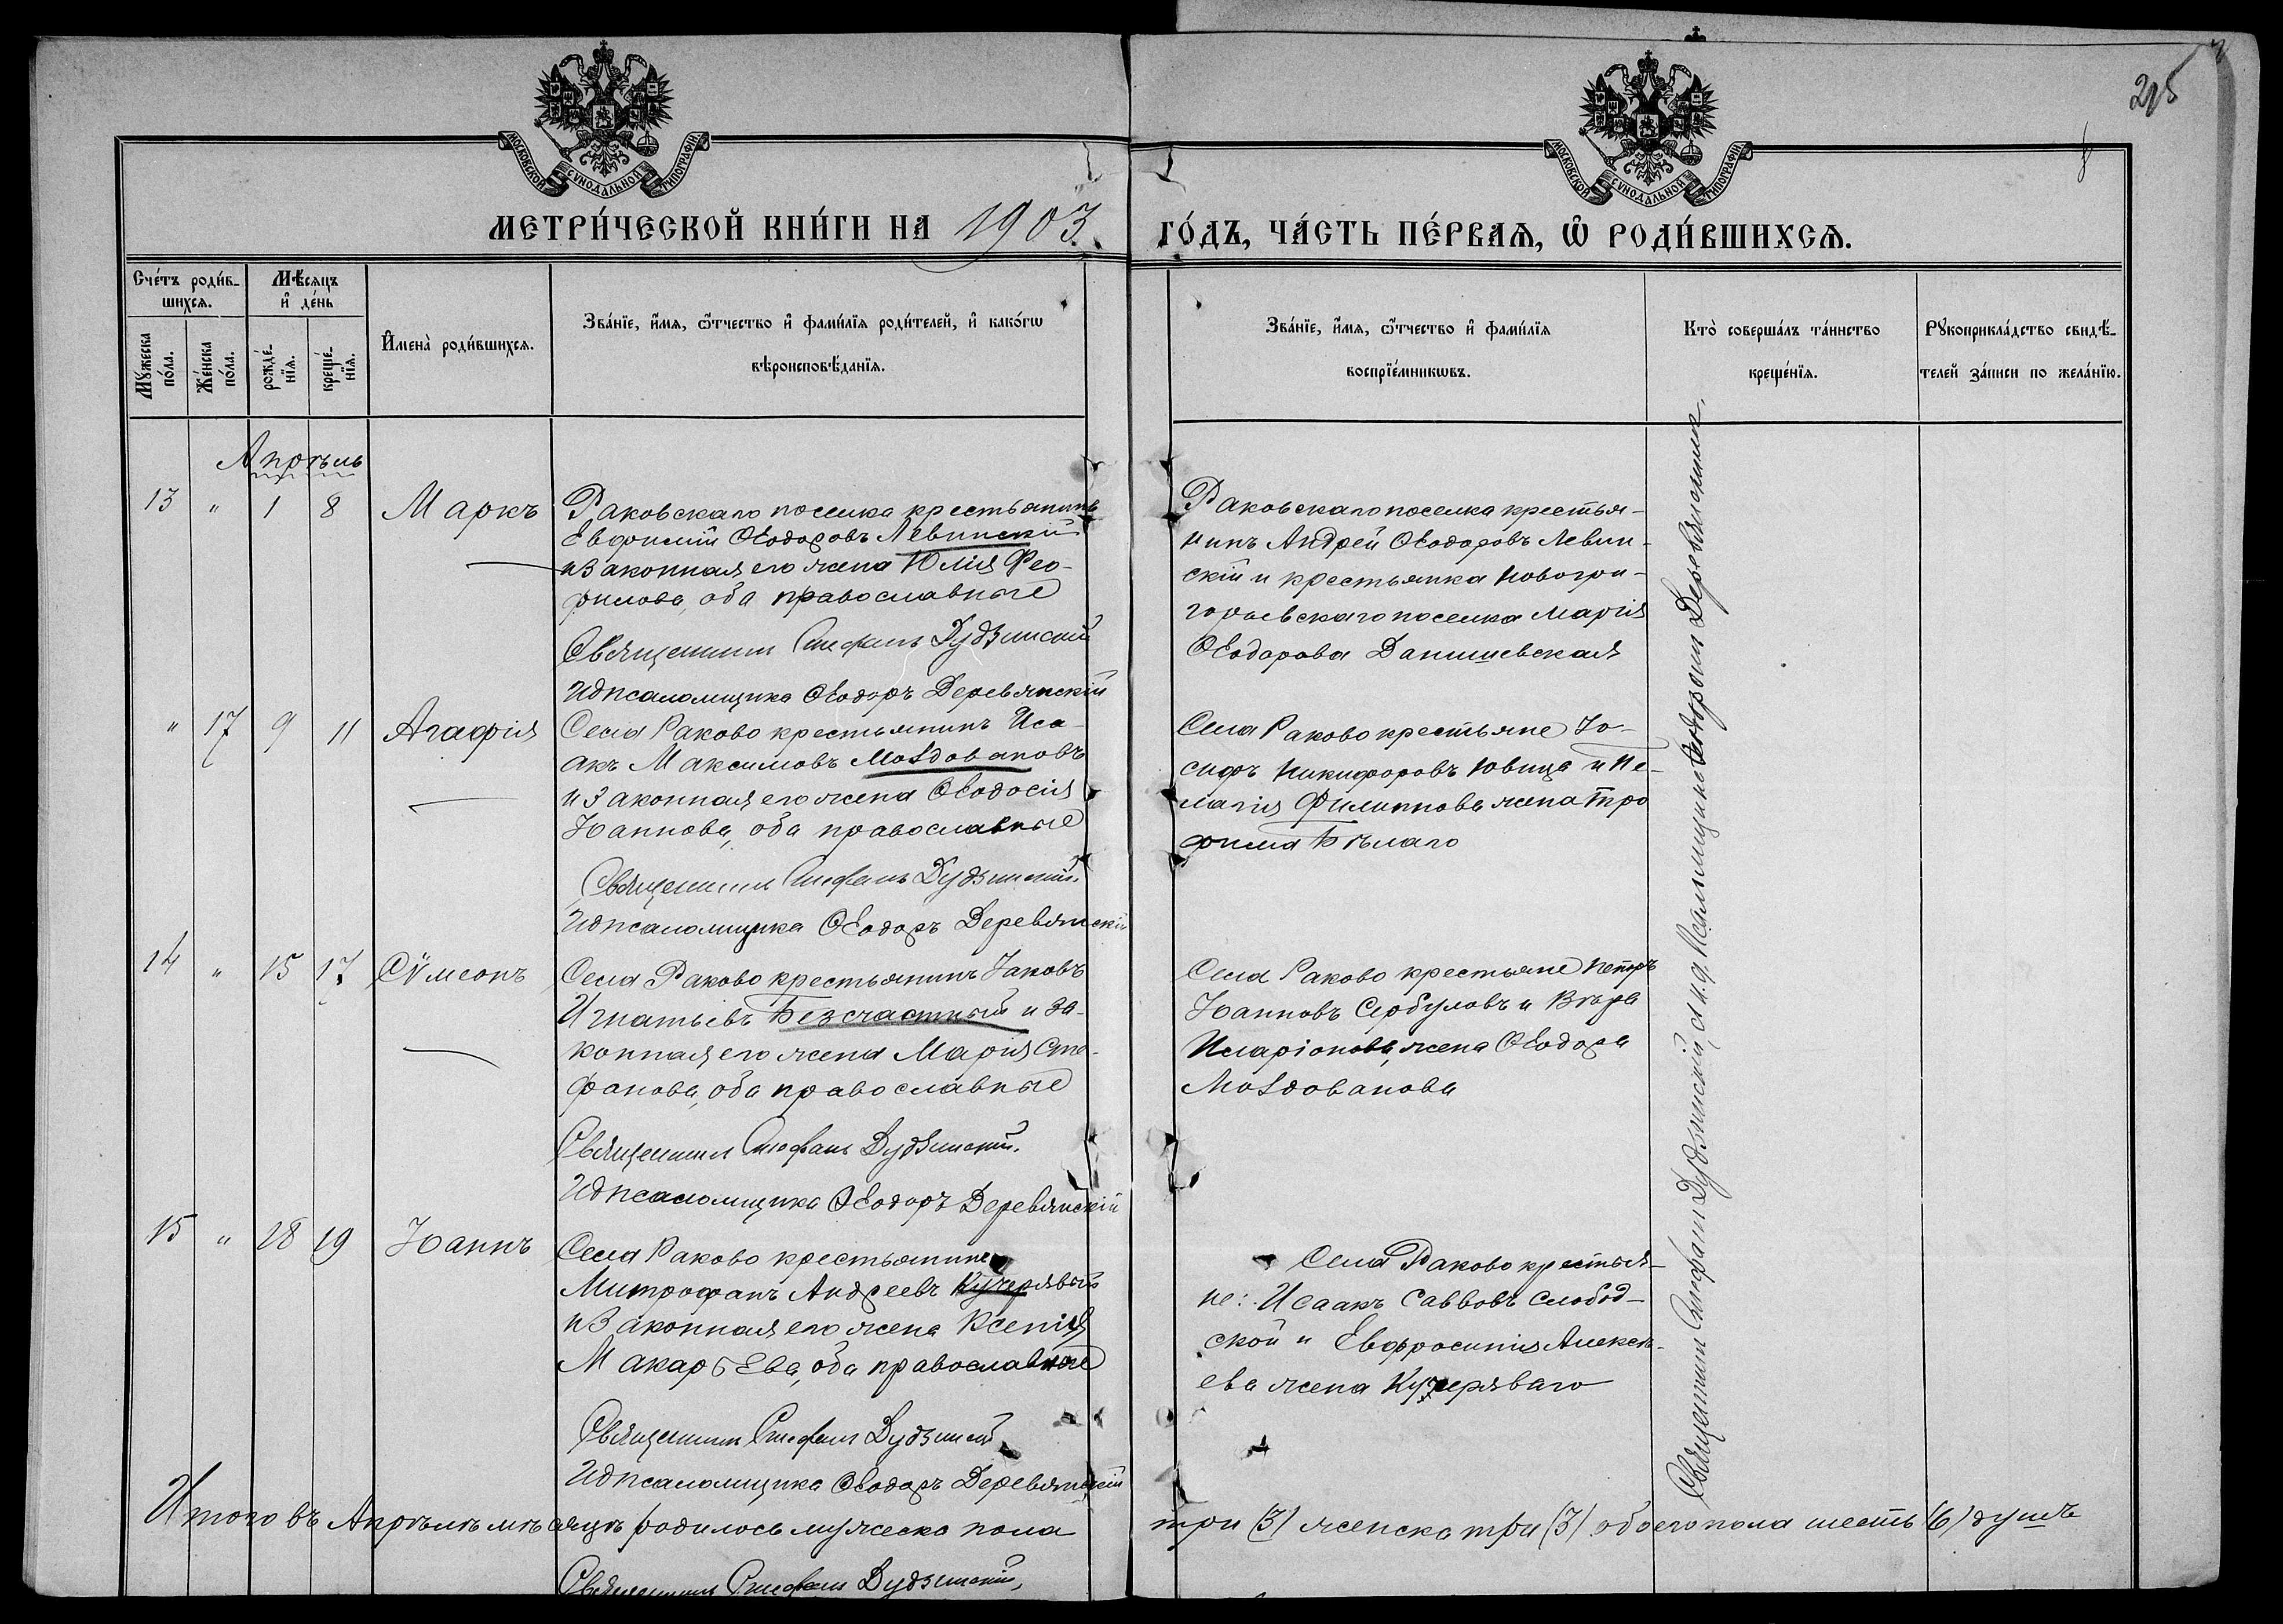 215
МОСКОВСКОЙ СѴНОДАЛЬНОЙ ТИПОГРАФІИ
МОСКОВСКОЙ СѴНОДАЛЬНОЙ ТИПОГРАФІИ
МЕТРИ́ЧЕСКОЙ КНИ́ГИ НА 1903 ГО́ДЪ, ЧА́СТЬ ПЕ́РВАѦ, Ѡ РОДИ́ВШИХСѦ.
Сче́тъ роди́в-
шихсѧ.
Мꙋ́жеска по́ла.
Же́нска по́ла.
Мѣ́сѧцъ
и҆ де́нь
рожде́-
нїѧ.
креще́-
нїѧ.
И҆мена̀ роди́вшихсѧ.
Зва́нїе, и҆́мѧ, ѻ҆́тчество и҆ фами́лїѧ роди́телей, и҆ како́гѡ
вѣроисповѣ́данїѧ.
Зва́нїе, и҆́мѧ, ѻ҆́тчество и҆ фами́лїѧ
воспрїе́мникѡвъ.
Кто̀ соверша́лъ та́инство
креще́нїѧ.
Рꙋкоприкла́дство свидѣ́-
телей за́писи по жела́нїю.
Апрѣль
13 " 1 8 Маркъ
Раковскаго поселка крестьянинъ
Евфимій Ѳеодоровъ Левинскій
и законная его жена Юлія Фео-
филова, оба православные
Священникъ Стефанъ Дудзинскій
И д псаломщика Ѳеодоръ Деревянскій
Раковскаго поселка крестья-
нинъ Андрей Ѳеодоровъ Левин-
скій и крестьянка Новогри-
горьевскаго поселка Марія
Ѳеодорова Данишевская
" 17 9 11 Агафія
Села Раково крестьянинъ Иса-
акъ Максимовъ Молдовановъ
и законная его жена Ѳеодосія
Іоаннова, оба православные
Священникъ Стефанъ Дудзинскій.
И д псаломщика Ѳеодоръ Деревянскій
Села Раково крестьяне Іо-
сифъ Никифоровъ Ювица и Пе-
лагія Филиппова жена Тро
фима Бѣлаго
14 " 15 17 Сѷмеонъ
Села Раково крестьянинъ Іаковъ
Игнатьевъ Безсчастный и за-
конная его жена Марія Сте-
фанова, оба православные
Священникъ Стефанъ Дудзинскій.
И д псаломщика Ѳеодоръ Деревянскій
Села Раково крестьяне Петръ
Іоанновъ Сербуловъ и Вѣра
Иларіонова, жена Ѳеодора
Молдованова
15 " 18 19 Іоаннъ
Села Раково крестьянинъ
Митрофанъ Андреевъ Кучерявый
и законная его жена Ксенія
Макарьева, оба православные
Священникъ Стефанъ Дудзинскій
И д псаломщика Ѳеодоръ Деревянскій
Села Раково крестья-
не: Исаакъ Саввовъ Слобод-
ской и Евфросинія Алексѣ-
ева жена Кучеряваго
Священникъ Стефанъ Дудзинскій, съ и. д. Псаломщика Ѳеодоромъ Деревянскимъ.
Итого въ Апрѣлѣ мѣсяцѣ родилось мужеска пола три (3) женска три (3) обоего пола шесть (6) душъ
Священникъ Стефанъ Дудзинскій,